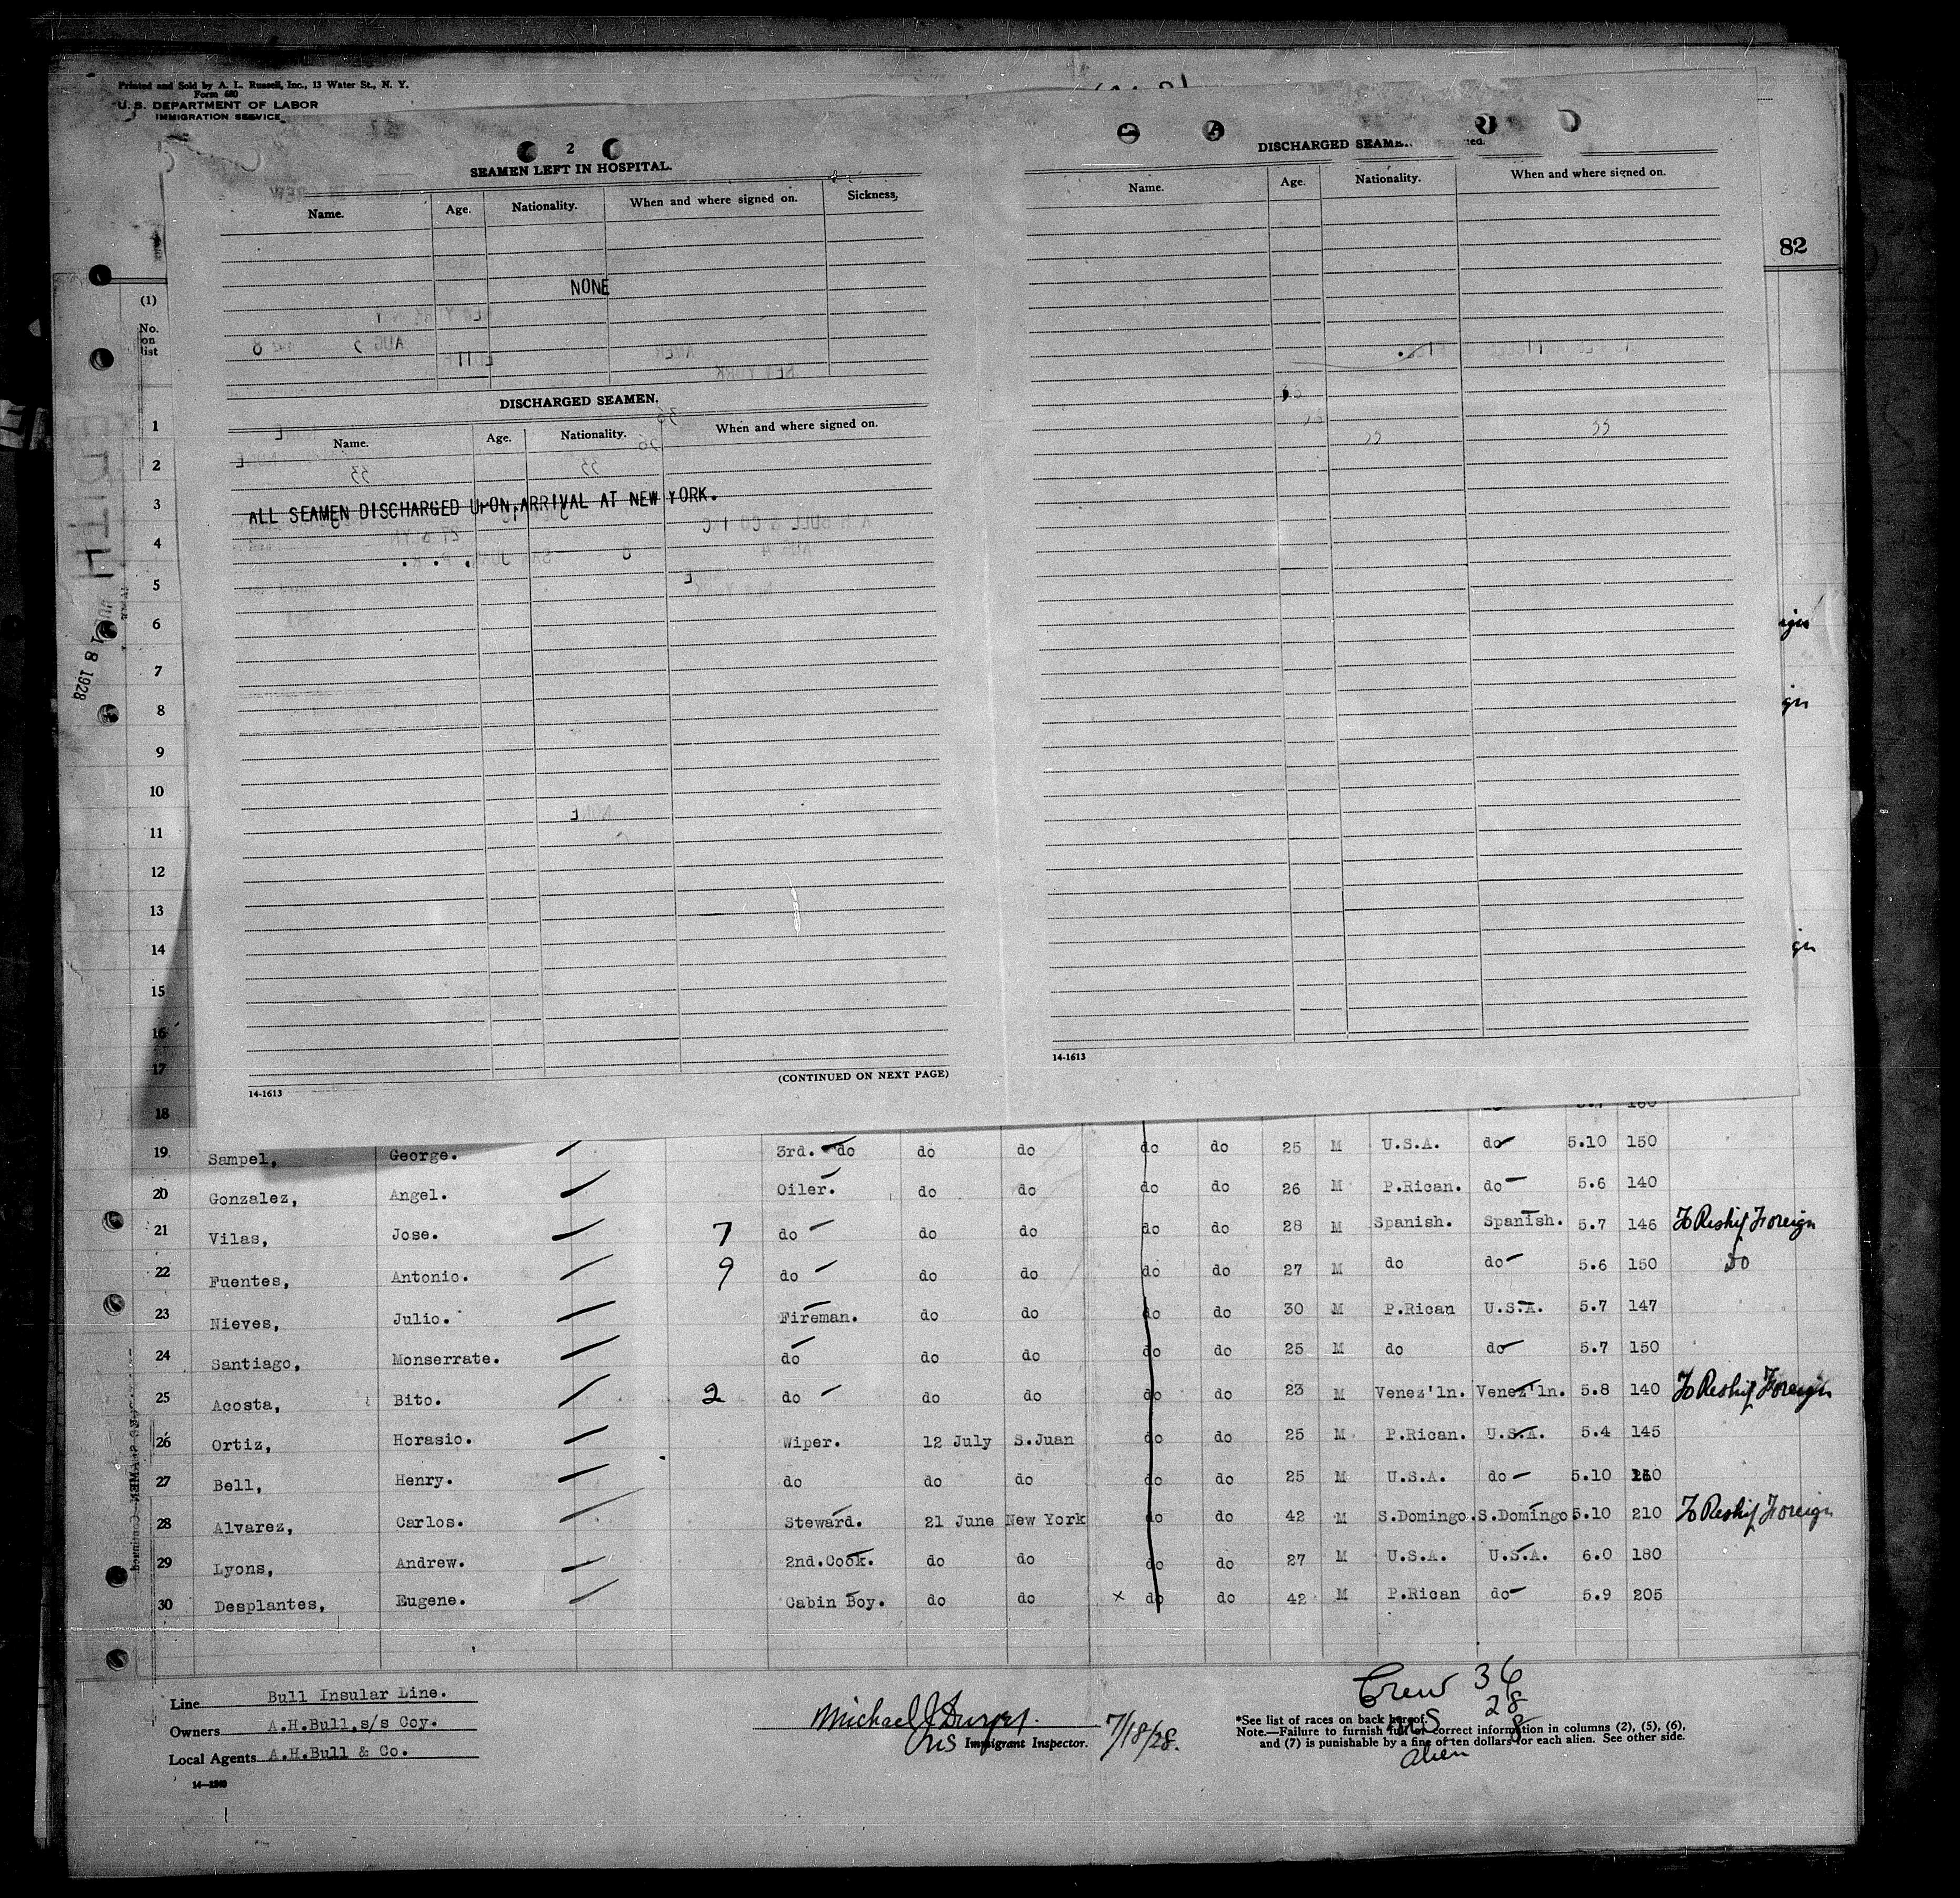 Printed and Sold by A. L. Russell, Inc., 13 Water St., N. Y.
Form 680
U. S. DEPARTMENT OF LABOR
IMMIGRATION SERVICE
2
SEAMEN LEFT IN HOSPITAL.
Name. Age. Nationality. When and where signed on. Sickness,
NONE
DISCHARGED SEAMEN.
Name. Age. Nationality. When and where signed on.
ALL SEAMEN DISCHARGED UPON ARRIVAL AT NEW YORK.
(CONTINUED ON NEXT PAGE)
14-1613
DISCHARGED SEAMEN
Name. Age. Nationality. When and where signed on.
14-1613
82
(1)
No.
on
list
1
2
3
4
5
6
7
8
9
10
11
12
13
14
15
16
17
18
18 1928
19 Sampel, George. 3rd. do do do do do 25 M U.S.A. do 5.10 150
20 Gonzalez, Angel. Oiler. do do do do 26 M P.Rican. do 5.6 140
21 Vilas, Jose. 7 do do do do do 28 M Spanish. Spanish. 5.7 146 To Reship Foreign
22 Fuentes, Antonio. 9 do do do do do 27 M do do 5.6 150 do
23 Nieves, Julio. Fireman. do do do do 30 M P.Rican U.S.A. 5.7 147
24 Santiago, Monserrate. do do do do do 25 M do do 5.7 150
25 Acosta, Bito. 2 do do do do do 23 M Venez'ln. Venez'ln. 5.8 140 To Reship Foreign
26 Ortiz, Horasio. Wiper. 12 July S.Juan do do 25 M P.Rican. U.S.A. 5.4 145
27 Bell, Henry. do do do do do 25 M U.S.A. do 5.10
28 Alvarez, Carlos. Steward. 21 June New York do do 42 M S.Domingo. S.Domingo 5.10 210 To Reship Foreign
29 Lyons, Andrew. 2nd.Cook. do do do do 27 M U.S.A. U.S.A. 6.0 180
30 Desplantes, Eugene. Cabin Boy. do do x do do 42 M P.Rican do 5.9 205
Line Bull Insular Line.
Owners A.H.Bull.s/s Coy.
Local Agents A.H.Bull & Co.
14-1240
Michael J
Immigrant Inspector.
7/18/28.
Crew 36
28
US
8
alien
*See list of races on back hereof.
Note.—Failure to furnish full or correct information in columns (2), (5), (6),
and (7) is punishable by a fine of ten dollars for each alien. See other side.